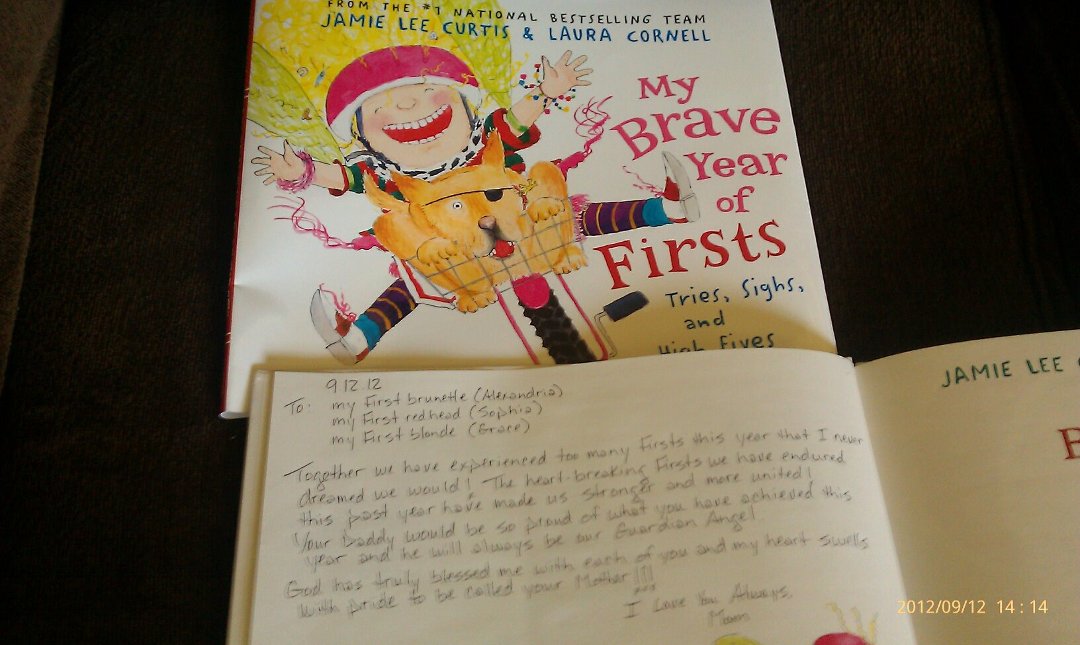 FROM THE #1 NATIONAL BESTSELLING TEAM
JAMIE LEE CURTIS & LAURA CORNELL
My
Brave
Year
of
Firsts
Tries, Sighs,
and
High Fives
JAMIE LEE
B
9.12.12
To: my First brunette (Alexandria)
my First redhead (Sophia)
my First blonde (Grace)
Together we have experienced too many Firsts this year that I never
dreamed we would! The heart-breaking Firsts we have endured
this past year have made us stronger and more united!
Your Daddy would be so proud of what you have achieved this
year and he will always be our Guardian Angel
God has truly blessed me with each of you and my heart swells
with pride to be called your Mother!!!
I Love You Always,
Mom
2012/09/12 14:14